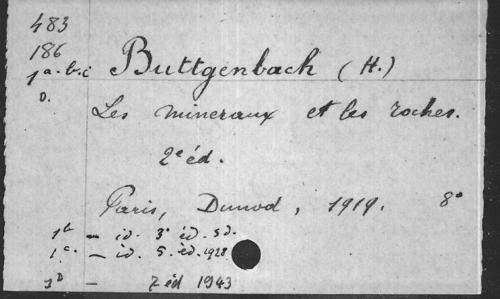 483
186
1a.b.c Buttgenbach (H.)
D.
Les mineraux et les roches.
2e éd.
Paris, Dunod, 1919. 8°
1b — id. 3e éd. s.d.
1c. — id. 5. éd. 1928
1D — 7 éd 1943